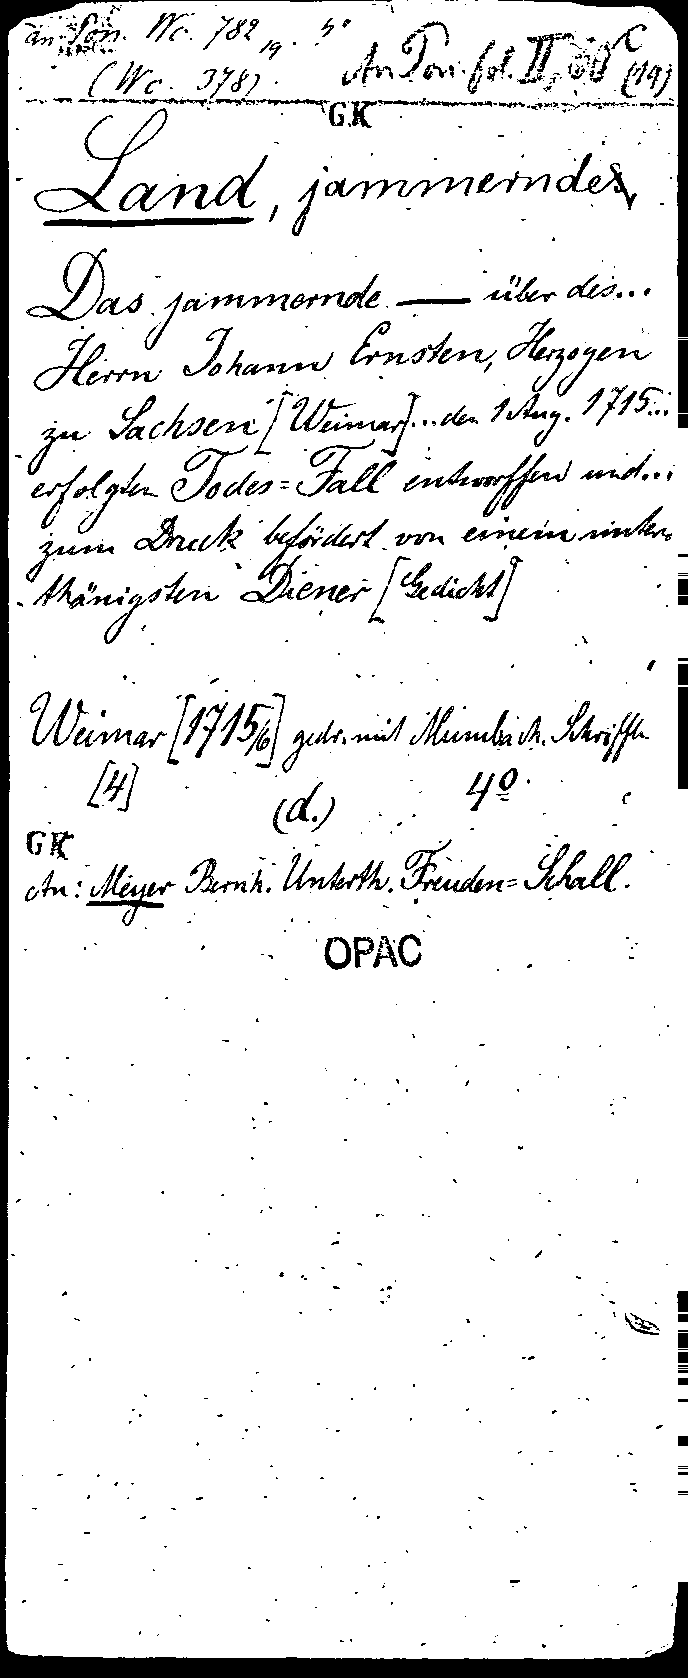 an Pon. Wc. 782, 19. 4°
(Wc. 378) An Pon. fol. II, 60 C (19)
GK
Land, jammerndes
Das jammernde — über des...
Herrn Johann Ernsten, Herzogen
zu Sachsen [Weimar]... den 1 Aug. 1715...
erfolgten Todes=Fall entworffen und...
zum Druck befördert von einem unter=
thänigsten Diener [Gedicht]
Weimar [1715/6] gedr. mit Mumbach. Schrifften
[4] (d.) 4°
GK
An: Meyer Bernh. Unterth. Freuden=Schall.
OPAC